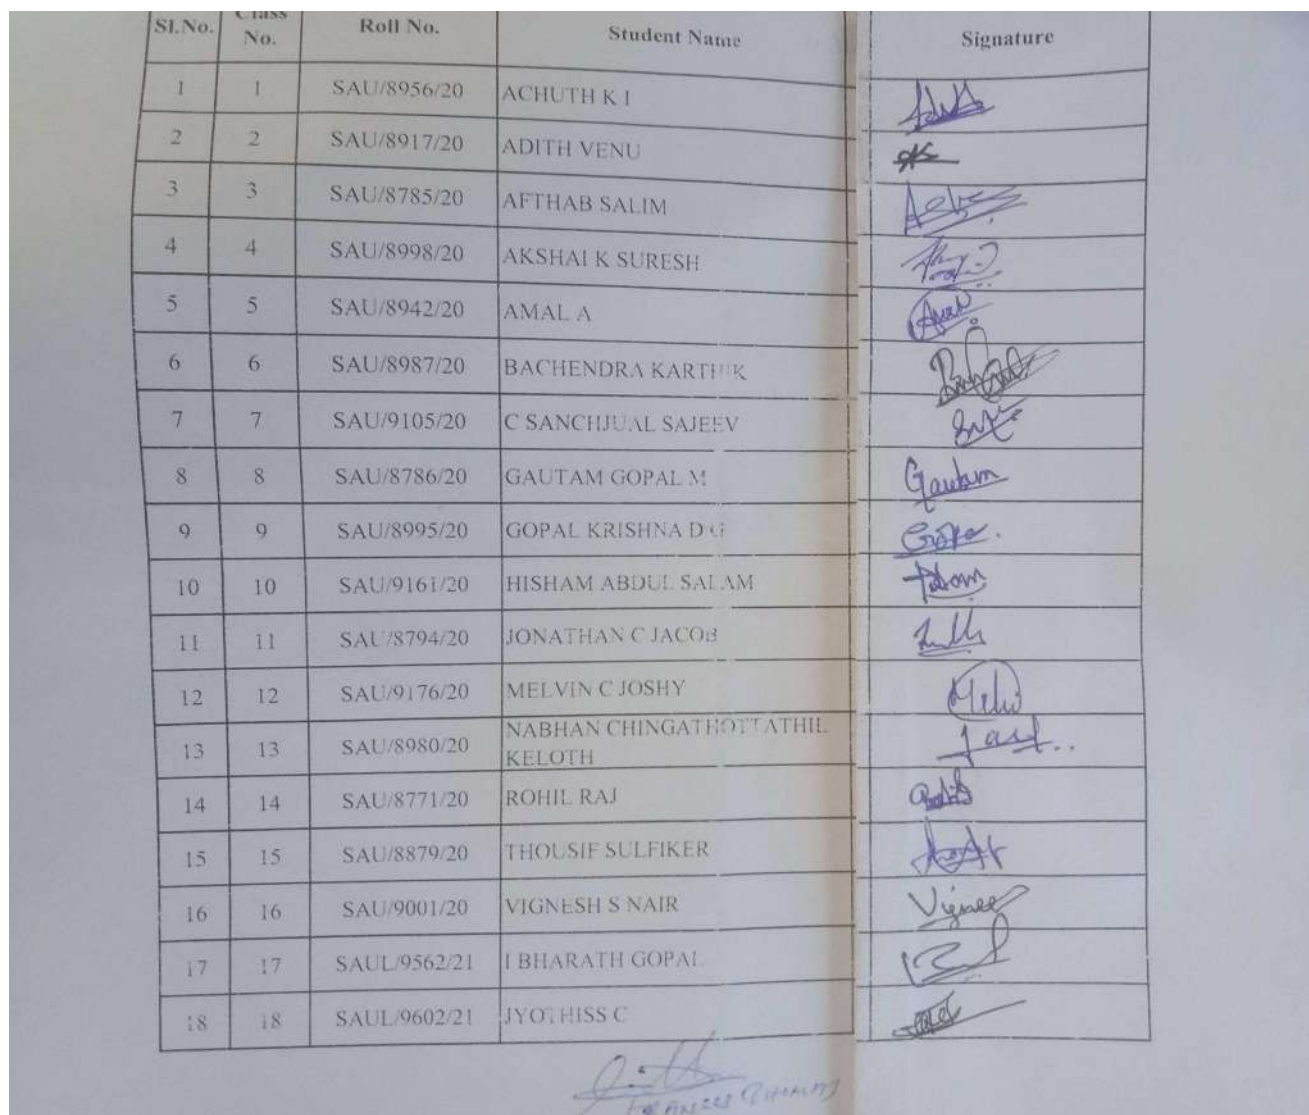 Sl.No. Class No. Roll No. Student Name Signature
1 1 SAU/8956/20 ACHUTH K I
2 2 SAU/8917/20 ADITH VENU
3 3 SAU/8785/20 AFTHAB SALIM
4 4 SAU/8998/20 AKSHAI K SURESH
5 5 SAU/8942/20 AMAL A
6 6 SAU/8987/20 BACHENDRA KARTHIK
7 7 SAU/9105/20 C SANCHJUAL SAJEEV
8 8 SAU/8786/20 GAUTAM GOPAL M Gautam
9 9 SAU/8995/20 GOPAL KRISHNA D G
10 10 SAU/9161/20 HISHAM ABDUL SALAM
11 11 SAU/8794/20 JONATHAN C JACOB
12 12 SAU/9176/20 MELVIN C JOSHY
13 13 SAU/8980/20 NABHAN CHINGATHOTTATHIL
KELOTH
14 14 SAU/8771/20 ROHIL RAJ
15 15 SAU/8879/20 THOUSIF SULFIKER
16 16 SAU/9001/20 VIGNESH S NAIR
17 17 SAUL/9562/21 I BHARATH GOPAL
18 18 SAUL/9602/21 JYOTHISS C